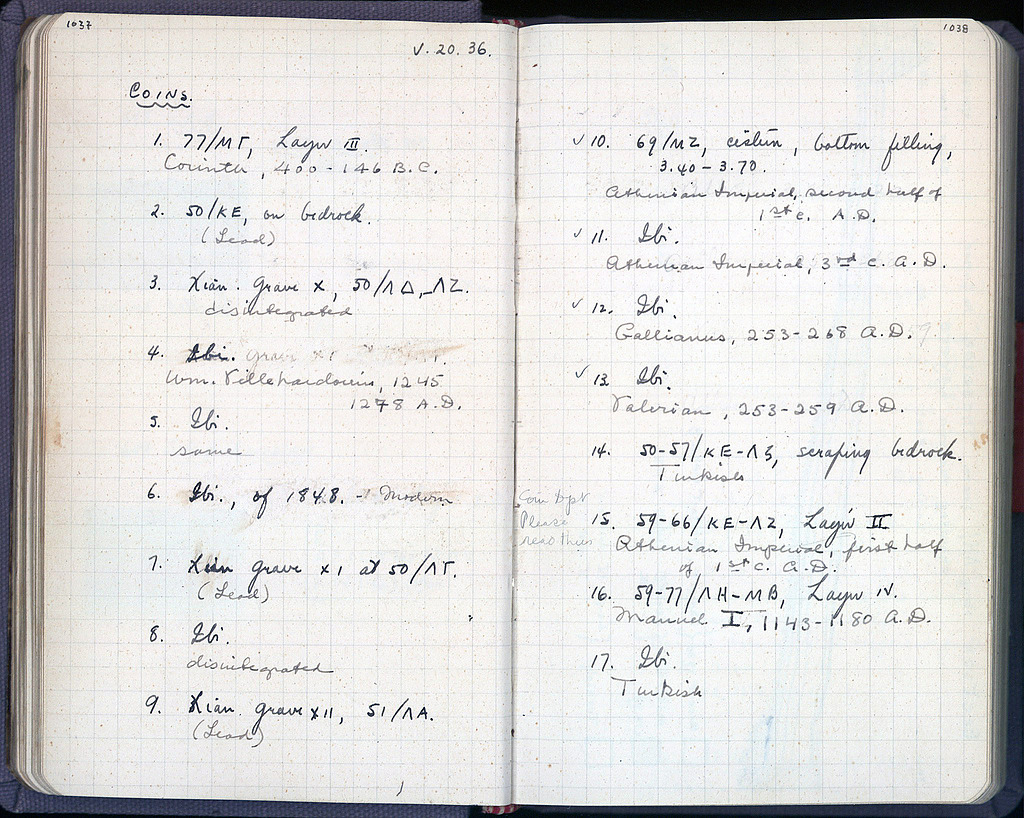 1037
V. 20. 36.
COINS.
1. 77/ΜΓ, Layer III.
Corinth, 400-146 B.C.
2. 50/ΚΕ, on bedrock.
(Lead)
3. Xian. Grave X, 50/ΛΔ,-ΛΖ.
disintegrated
4. Ibi. Grave XI
Wm. Villehardouin, 1245
1278 A.D.
5. Ibi.
same
6. Ibi., of 1848. - Modern
7. Xian grave XI at 50/ΛΓ.
(Lead)
8. Ibi.
disintegrated
9. Xian. grave XII, 51/ΛΑ.
(Lead)
1038
✓ 10. 69/ΜΖ, cistern, bottom filling,
3.40-3.70.
Athenian Imperial, second half of
1st c. A.D.
✓ 11. Ibi.
Athenian Imperial, 3rd c. A.D.
✓ 12. Ibi.
Gallianus, 253-268 A.D. ?
✓ 13. Ibi.
Valerian, 253-259 A.D.
14. 50-57/ΚΕ-Λς, scraping bedrock.
Turkish
Coin Dpt
Please
read this
15. 59-66/ΚΕ-ΛΖ, Layer II
Athenian Imperial, first half
of 1st c. A.D.
16. 59-77/ΛΗ-ΜΒ, Layer IV.
Manuel I, 1143-1180 A.D.
17. Ibi.
Turkish